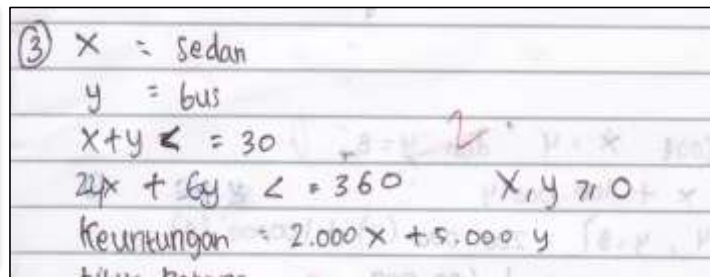 ③ x = sedan
y = bus
x+y < = 30
24x + 6y < = 360 x, y ≥ 0
Keuntungan = 2.000 x + 5.000 y